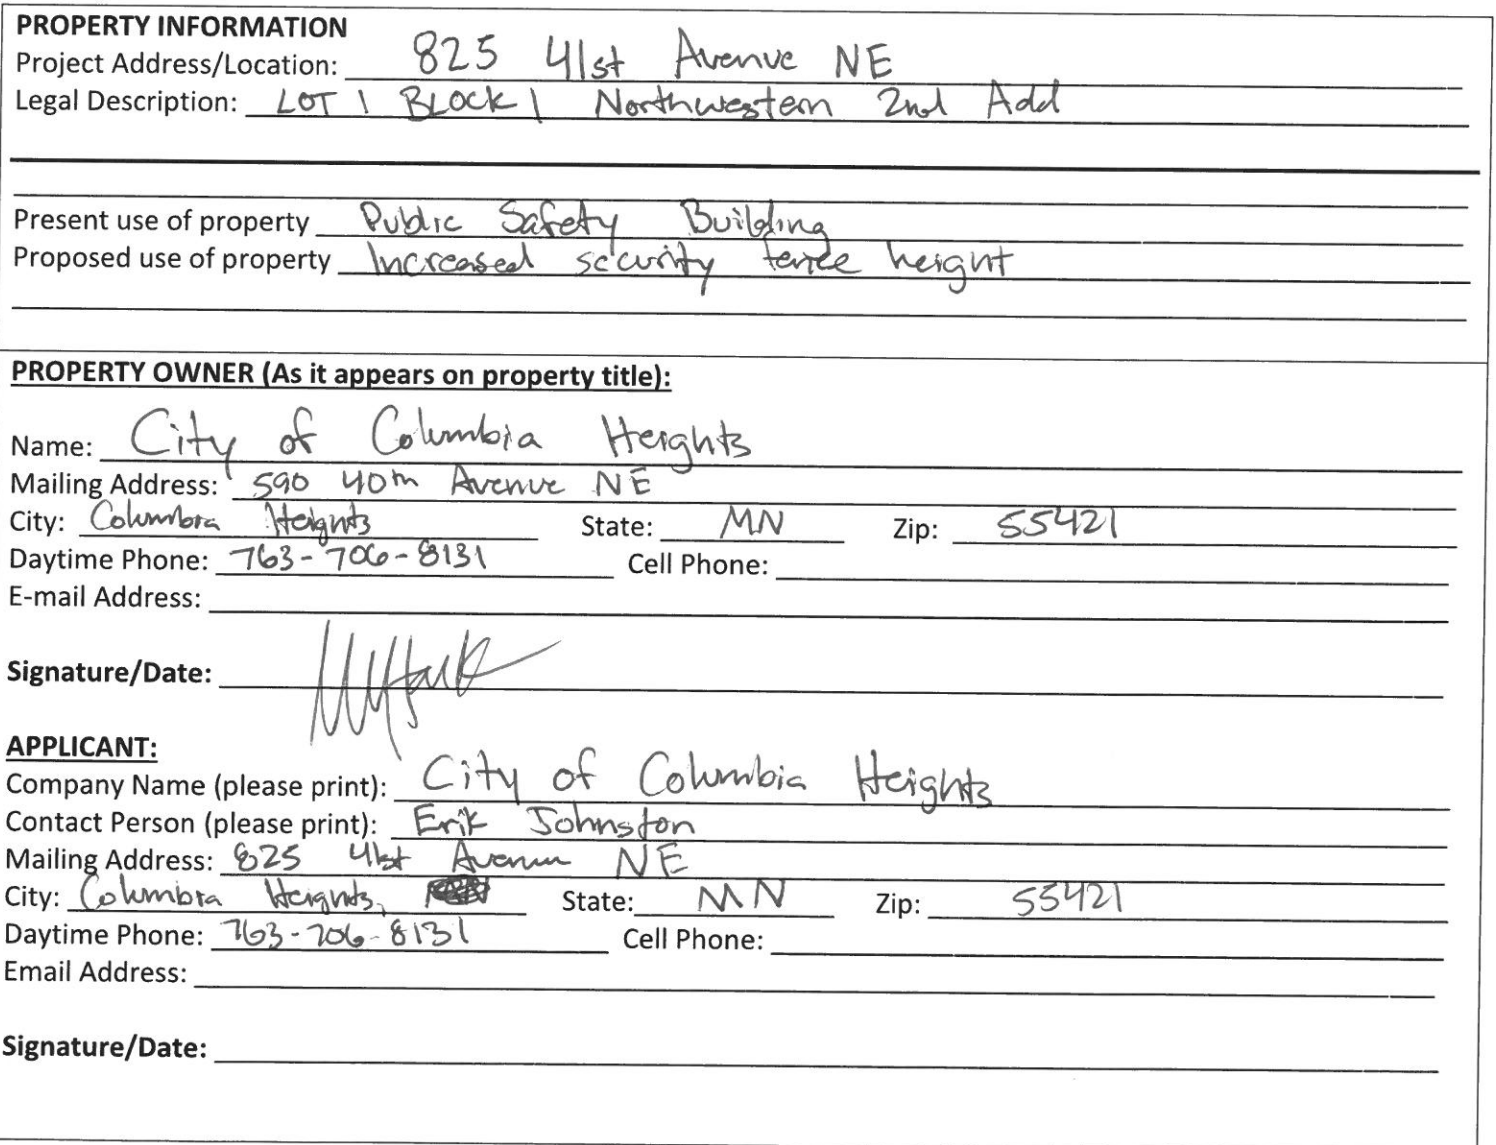 PROPERTY INFORMATION
Project Address/Location: 825 41st Avenue NE
Legal Description: LOT 1 BLOCK 1 Northwestern 2nd Add
Present use of property Public Safety Building
Proposed use of property Increased security fence height
PROPERTY OWNER (As it appears on property title):
Name: City of Columbia Heights
Mailing Address: 590 40th Avenue NE
City: Columbia Heights State: MN Zip: 55421
Daytime Phone: 763-706-8131 Cell Phone:
E-mail Address:
Signature/Date:
APPLICANT:
Company Name (please print): City of Columbia Heights
Contact Person (please print): Erik Johnston
Mailing Address: 825 41st Avenue NE
City: Columbia Heights, State: MN Zip: 55421
Daytime Phone: 763-706-8131 Cell Phone:
Email Address:
Signature/Date: